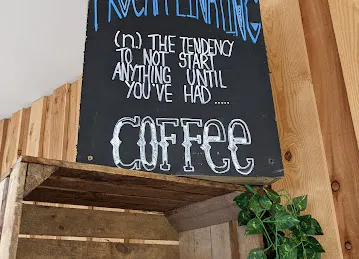 PROCAFFEINATING
(n.) THE TENDENCY
TO NOT START
ANYTHING UNTIL
YOU'VE HAD .....
COFFEE